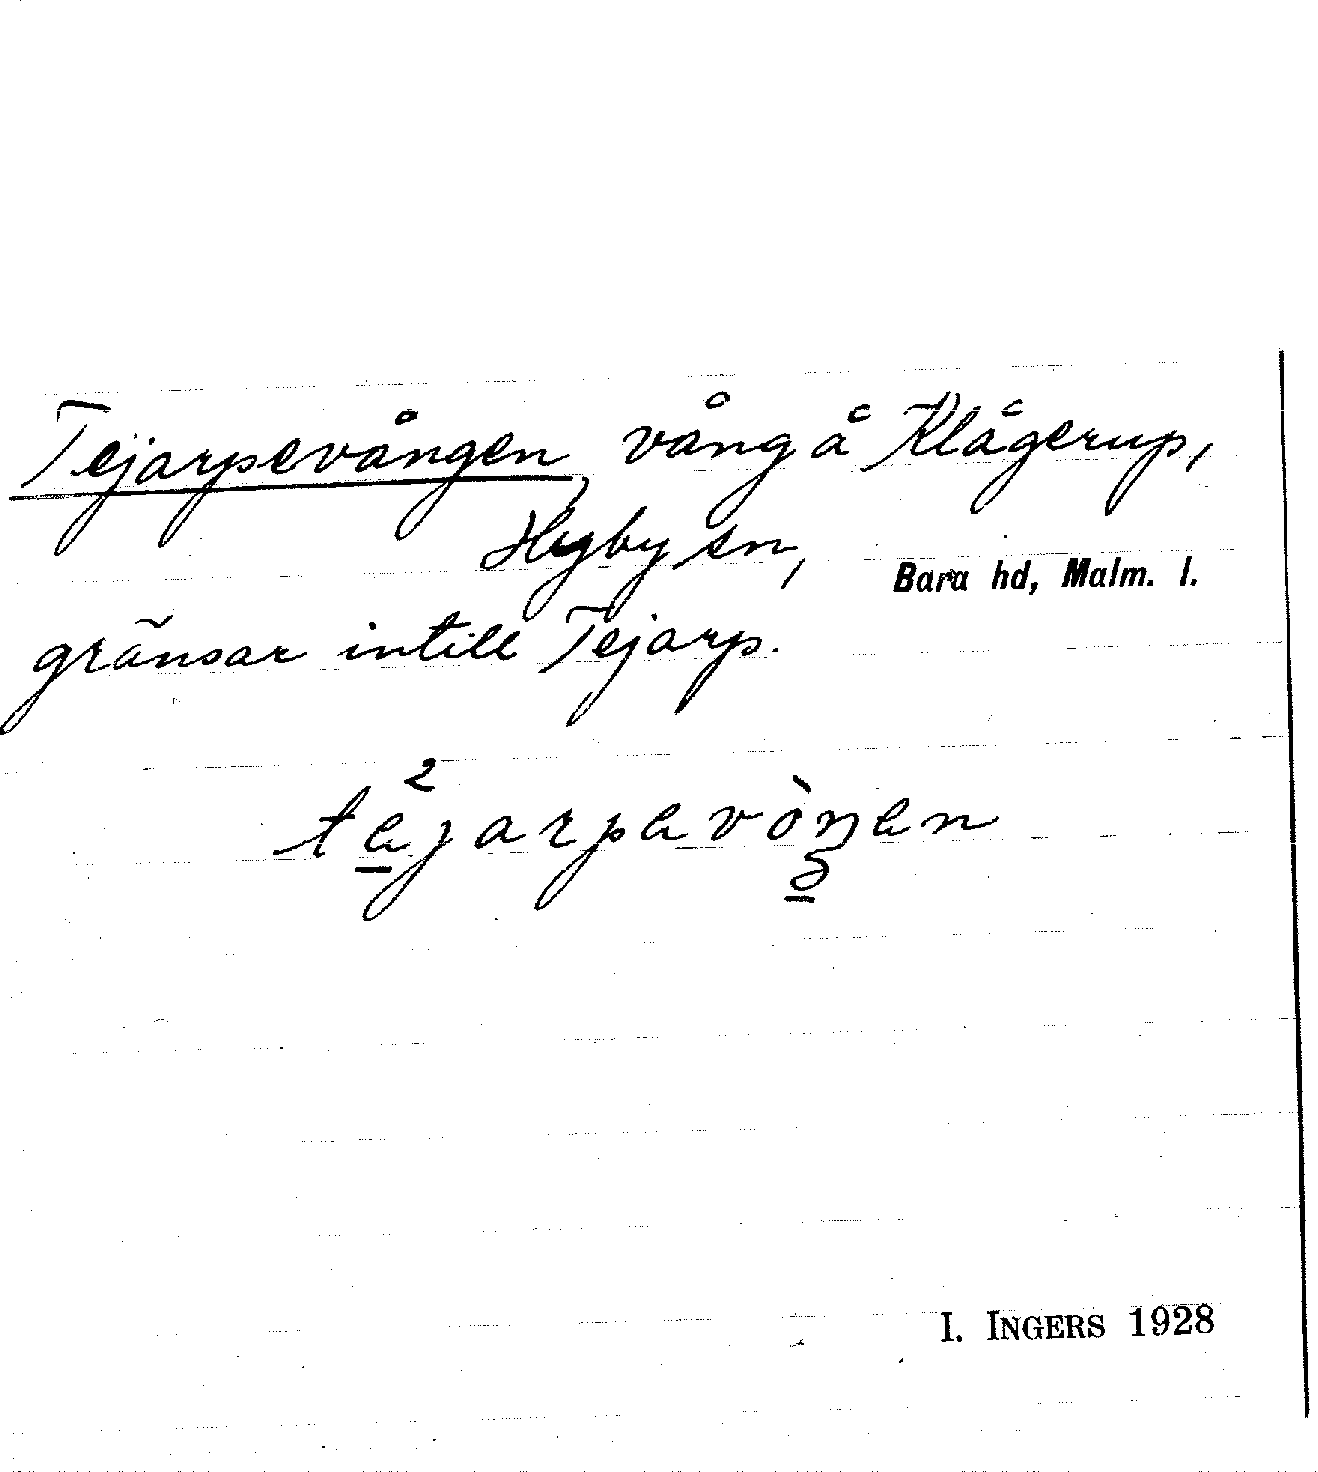 Tejarpevången vång å Klågerup,
Hyby sn, Bara hd, Malm. l.
gränsar intill Tejarp.
2
tejarpevòŋen
I. INGERS 1928